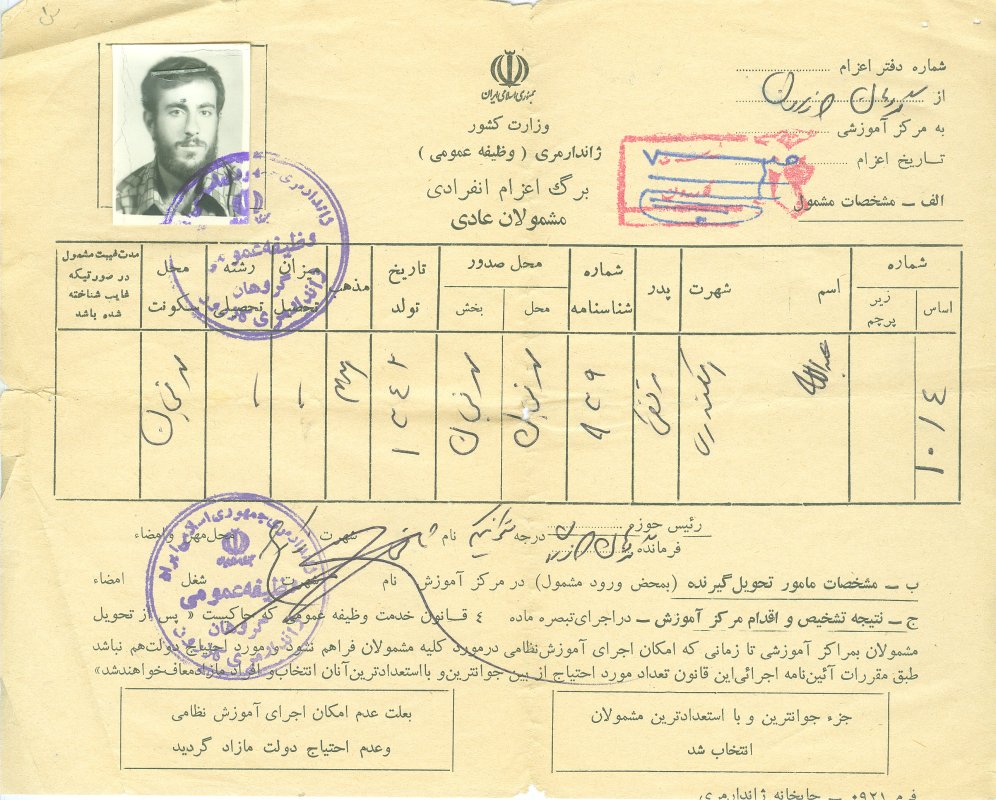 جمهوری اسلامی ایران
وزارت کشور
ژاندارمری ( وظیفه عمومی )
برگ اعزام انفرادی
مشمولان عادی
شماره دفتر اعزام
از
به مرکز آموزشی
تاریخ اعزام
الف ــ مشخصات مشمول
شماره
اساس
زیر پرچم
اسم
شهرت
پدر
شماره شناسنامه
محل صدور
محل
بخش
تاریخ تولد
مذهب
میزان تحصیل
رشته تحصیلی
محل سکونت
مدت غیبت مشمول
در صورتیکه
غایب شناخته
شده باشد
۱۰/۴
عبدالله
اسکندری
۸۳۹
۱۳۴۲
رئیس حوزه
فرمانده
درجه
نام
شهرت
محل مهر و امضاء
ژاندارمری جمهوری اسلامی ایران
وظیفه عمومی
گروهان
ب ــ مشخصات مامور تحویل گیرنده (بمحض ورود مشمول) در مرکز آموزش نام شهرت شغل امضاء
ج ــ نتیجه تشخیص و اقدام مرکز آموزش ــ در اجرای تبصره ماده ۴ قانون خدمت وظیفه عمومی که حاکیست « پس از تحویل
مشمولان بمراکز آموزشی تا زمانی که امکان اجرای آموزش نظامی در مورد کلیه مشمولان فراهم نشود و مورد احتیاج دولت هم نباشد
طبق مقررات آئین نامه اجرائی این قانون تعداد مورد احتیاج از بین جوانترین و با استعدادترین آنان انتخاب و افراد مازاد معاف خواهند شد»
جزء جوانترین و با استعدادترین مشمولان
انتخاب شد
بعلت عدم امکان اجرای آموزش نظامی
وعدم احتیاج دولت مازاد گردید
فرم ۰۹۲۱ ــ چاپخانه ژاندارمری